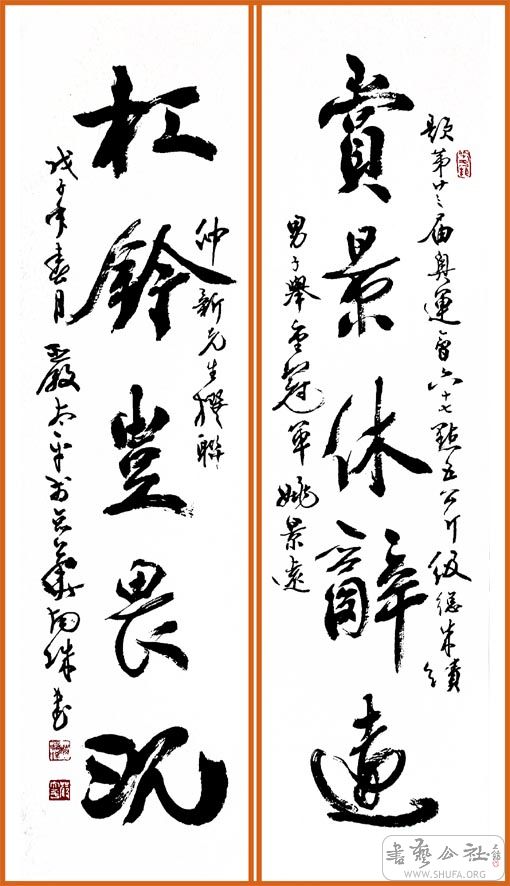 題第廿三屆奧運會六十七點五公斤級總成績
賞景休辭遠
男子舉重冠軍姚景遠
仲新先生撰聯
杠鈴豈畏沉
戊子年春月嚴太平於書
書藝公社
WWW.SHUFA.ORG